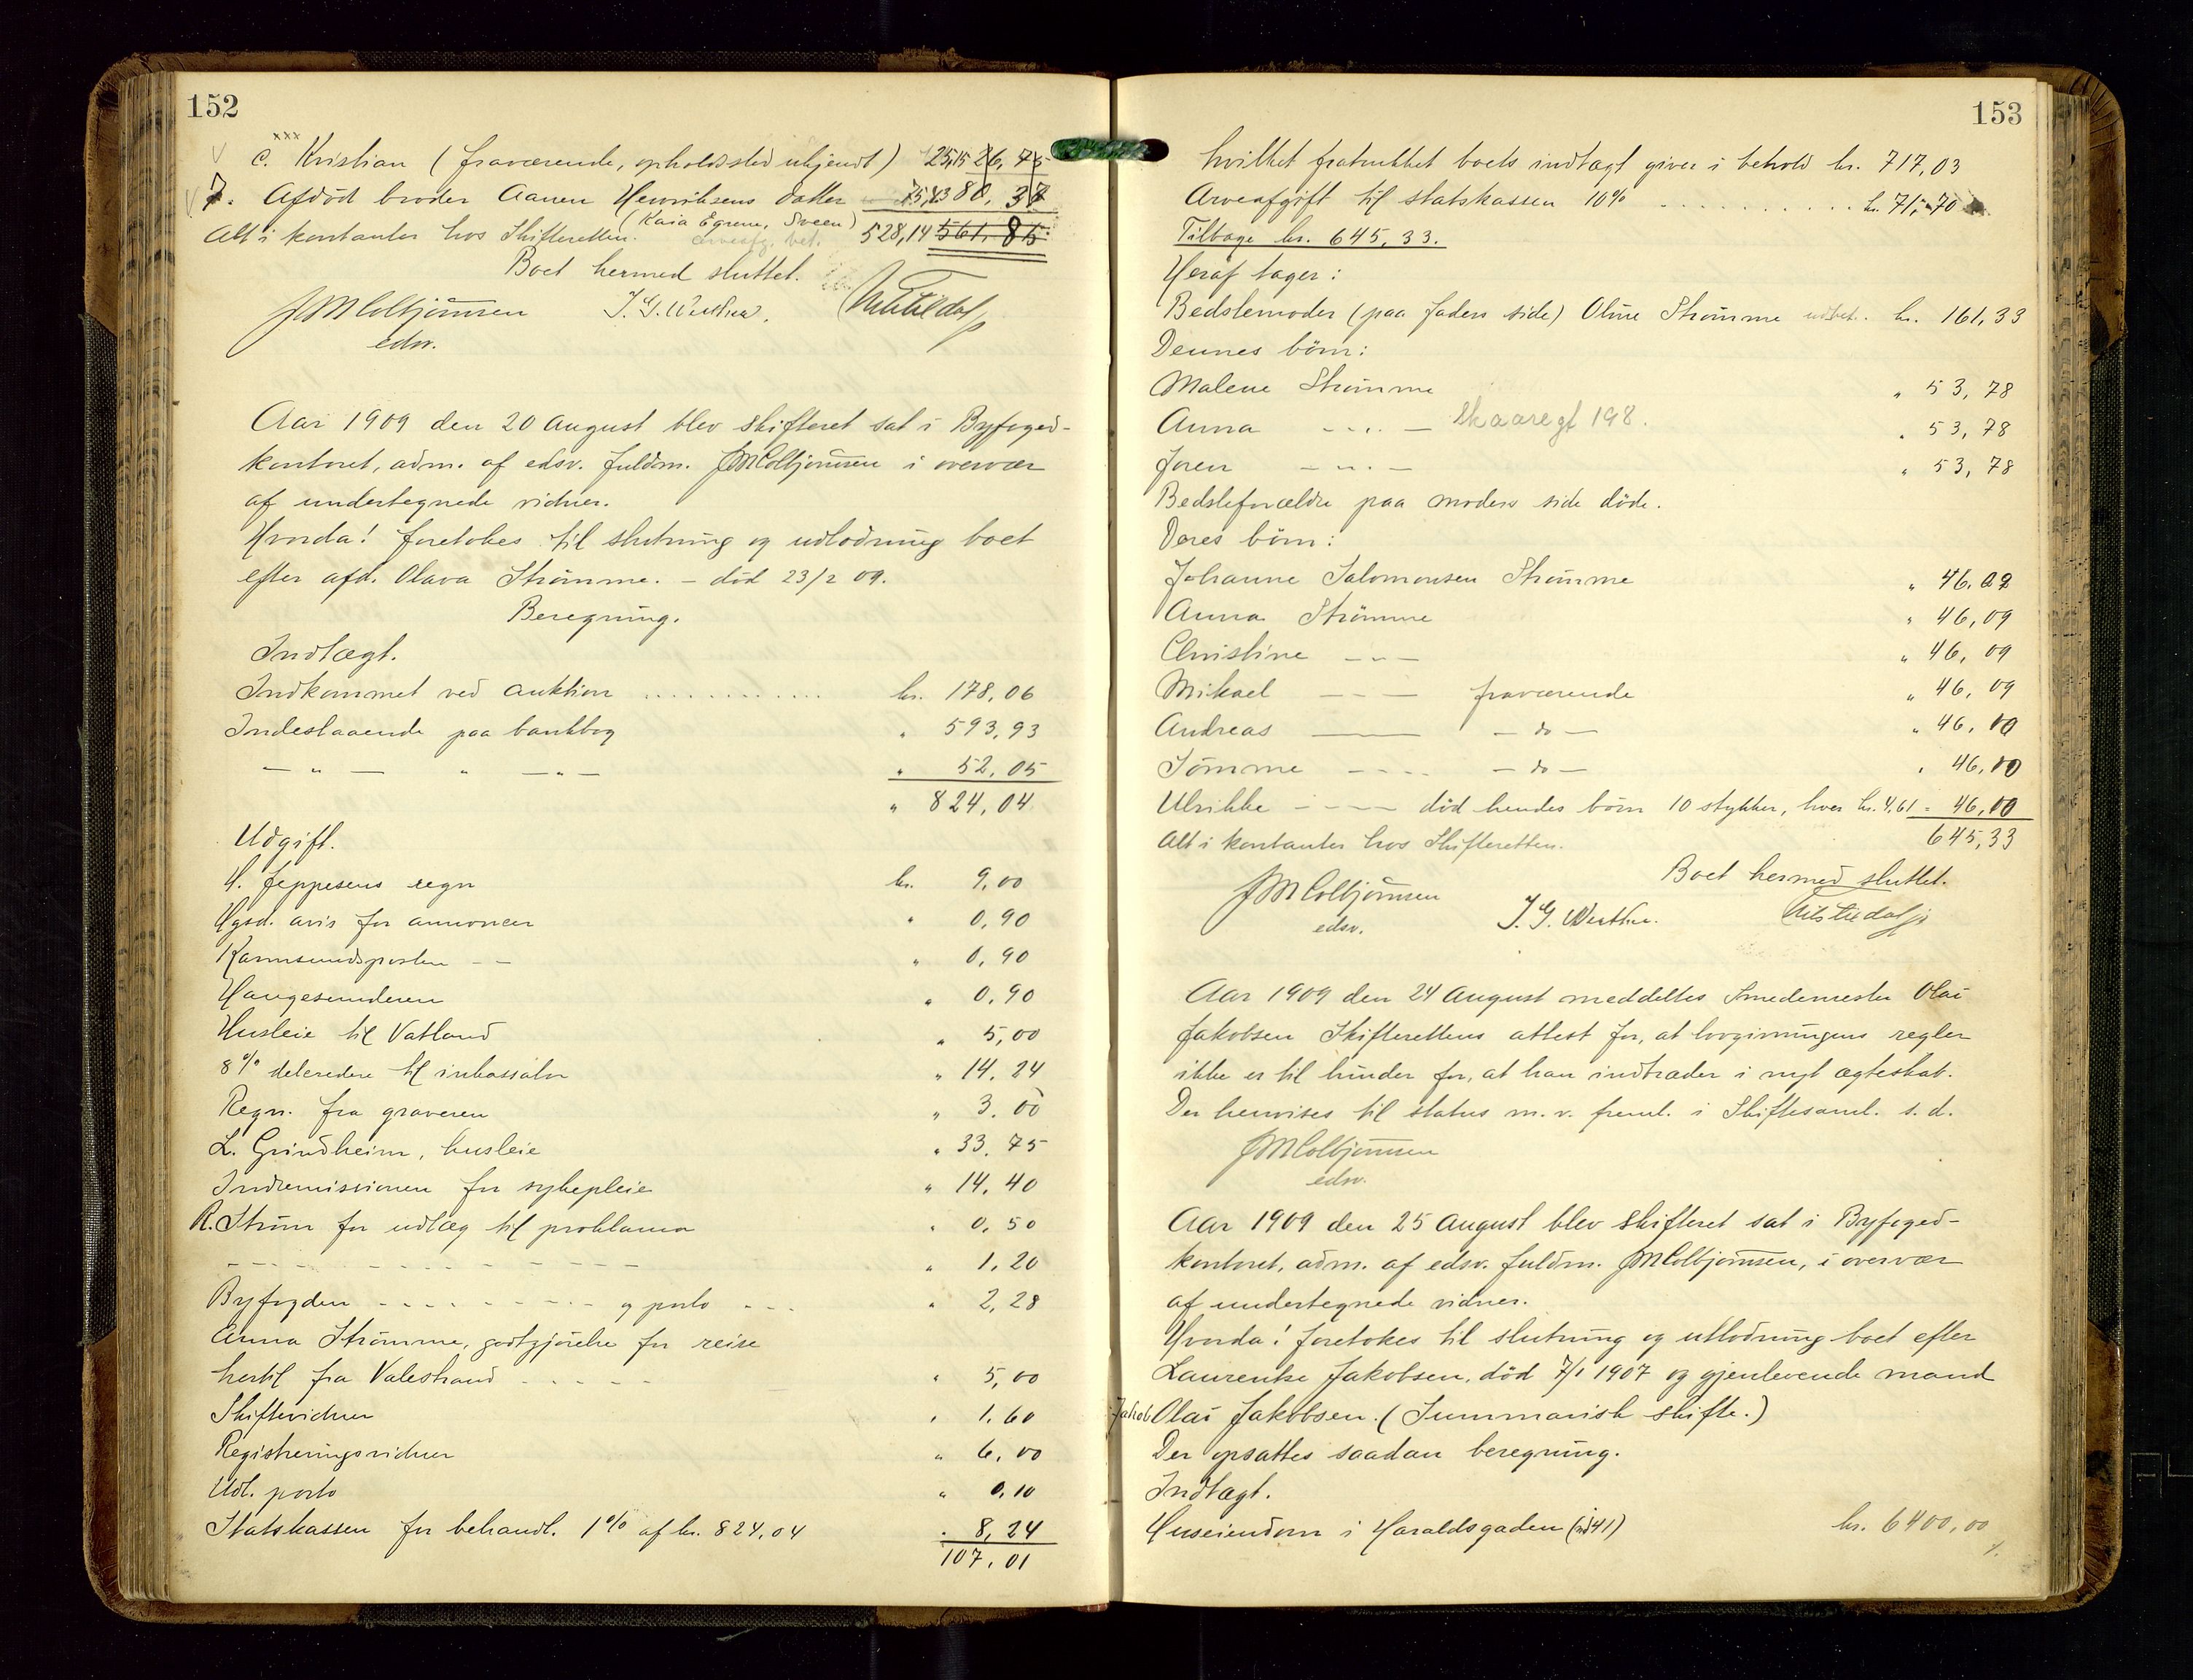 152
c. Kristian (fraværende, opholdssted ukjendt) 25,15 26,75
7. Afdöd broder Aanen Henriksens datter 75,43 80,38
(Kaia Egrene, Sveen)
Alt i kontanter hos Skifteretten. 528,14 561,85
Boet hermed sluttet.
JMColbjörnsen
edsv.
Aar 1909 den 20 August blev skifteret sat i Byfoged-
kontoret, adm. af edsv. fuldm. JMColbjörnsen i overvær
af undertegnede vidner.
Hvorda! foretokes til slutning og udlodning boet
efter afd. Olava Strömme. - död 23/2 09.
Beregning.
Indtægt.
Indkommet ved auktion ............ kr. 178,06
Indestaaende paa bankbog " 593,93
— " — " — " — " 52,05
" 824,04
Udgift.
H. Jeppesens regn kr. 9,00
Hgsd. avis for annoncer " 0,90
Karmsundsposten - - " 0,90
Haugesunderen " 0,90
Husleie til Vatland " 5,00
8% delcredere til inkassator " 14,24
Regn. fra graveren " 3,00
L. Grindheim, husleie " 33,75
Indremissionen for sykepleie " 14,40
R. Ström for udlæg til proklama " 0,50
- - - - - - - - - - " 1,20
Byfogden - - - - - - - - og porto - - - " 2,28
Anna Strömme, godtgjörelse for reise
hertil fra Valestrand - - - - - " 5,00
Skiftevidner " 1,60
Registreringsvidner " 6,00
Udl. porto " 0,10
Statskassen for behandl. 1% af kr. 824,04 " 8,24
107,01
153
hvilket fratrukket boets indtægt giver i behold kr. 717,03
Arveafgift til statskassen 10% .......... kr. 71,70
Tilbage kr. 645,33.
Heraf tager:
Bedstemoder (paa faders side) Oline Strömme udbet. kr. 161,33
Dennes börn:
Malene Strömme " 53,78
Anna - - . - " 53,78
Joren - " - " 53,78
Bedsteforældre paa moders side döde.
Deres börn:
Johanne Salomonsen Strömme " 46,09
Anna Strömme " 46,09
Christine - " - " 46,09
Mikael - - - fraværende " 46,09
Andreas — - do - " 46,10
Tömme - - - - - do - " 46,10
Ulrikke - - - död hendes börn 10 stykker, hver kr. 4,61 = 46,10
645,33
Alt i kontanter hos Skifteretten.
Boet hermed sluttet.
JMColbjörnsen
edsv.
Aar 1909 den 24 August meddeltes Smedemester Olai
Jakobsen Skifterettens attest for, at lovgivningens regler
ikke er til hinder for, at han indtræder i nyt ægteskab.
Der henvises til status m. v. freml. i Skiftesaml. s. d.
JMColbjörnsen
edsv.
Aar 1909 den 25 August blev skifteret sat i Byfoged-
kontoret, adm. af edsv. fuldm. JMColbjörnsen, i overvær
af undertegnede vidner.
Hvorda! foretokes til slutning og utlodning boet efter
Laurentse Jakobsen, död 7/1 1907 og gjenlevende mand
Jakob Olai Jakobsen. (Summarisk skifte.)
Der opsattes saadan beregning.
Indtægt.
Huseiendom i Haraldsgaden kr. 6400,00